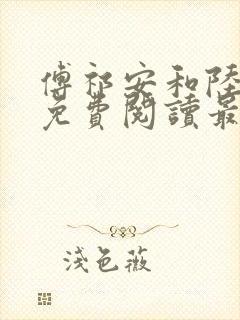 傅祁安和陸
免費閱讀最
淺色薇